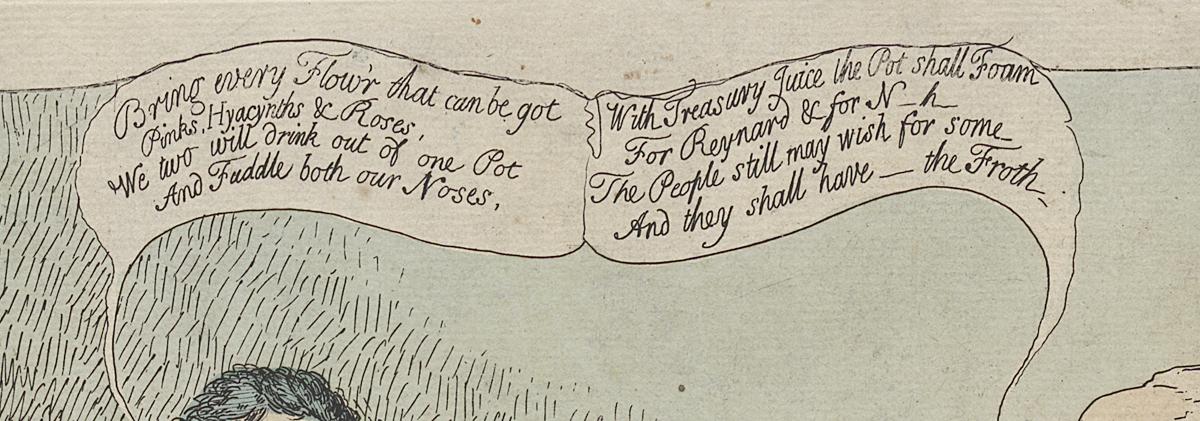 Bring every Flow'r that can be got
Pinks, Hyacynths & Roses,
We two will drink out of one Pot
And Fuddle both our Noses,
With Treasury Juice the Pot shall Foam
For Reynard & for N–h
The People still may wish for some
And they shall have — the Froth